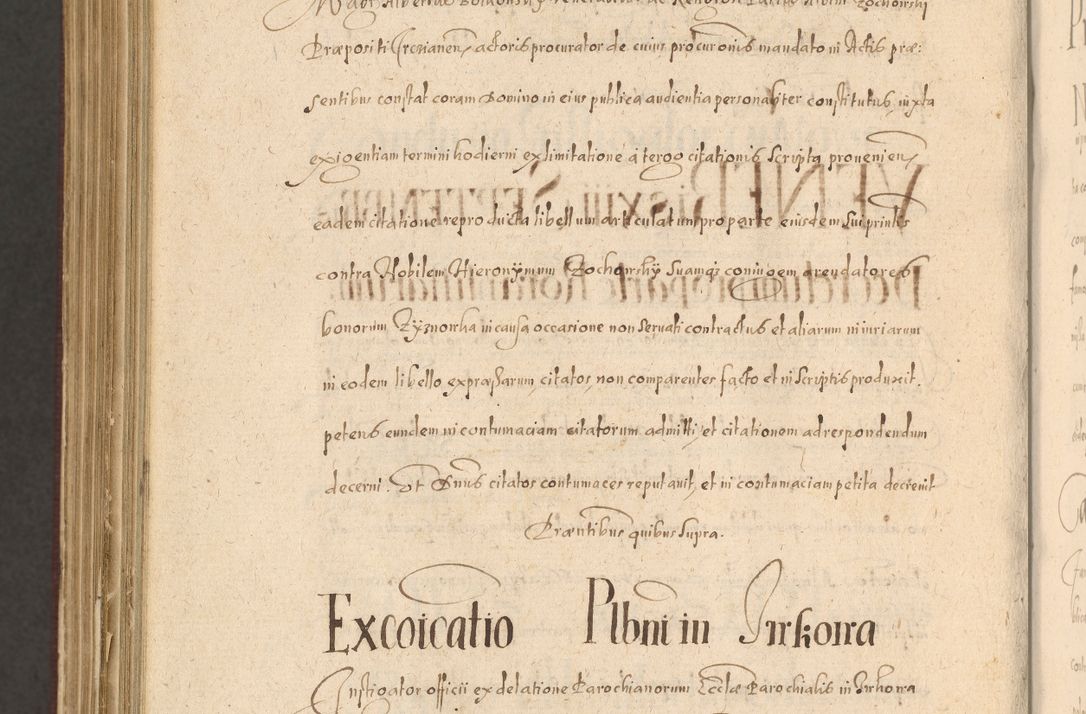 Præpositi Crozianen actoris procurator de cuius procurõnis mandato in Actis præ:
sentibus constat coram Domino in eius publica audientia personaliter constitutus, iuxta
exigentiam termini hodierni ex limitatione à tergo citationis scripta provenien
eadem citatione reproducta libellum articulatum pro parte eiusdem sui prinlis
contra Nobilem Hieronymum Zochowsky suamqs coniugem arendatores
bonorum Zyznowka in causa occasione non servati contractus et aliarum iniuriarum
in eodem libello expræssarum, citatos, non comparentes facto et in scriptis produxit.
petens eundem in contumaciam citatorum admitti, et citationem ad respondendum
decerni. Et Dnus citatos contumaces reputavit, et in contumaciam petita decrevit
Præntibus quibus supra.
Excoicatio Plbni in Irzkowa
Instigator officii ex delatione Parochianorum Ecclæ Parochialis in Irzkowa